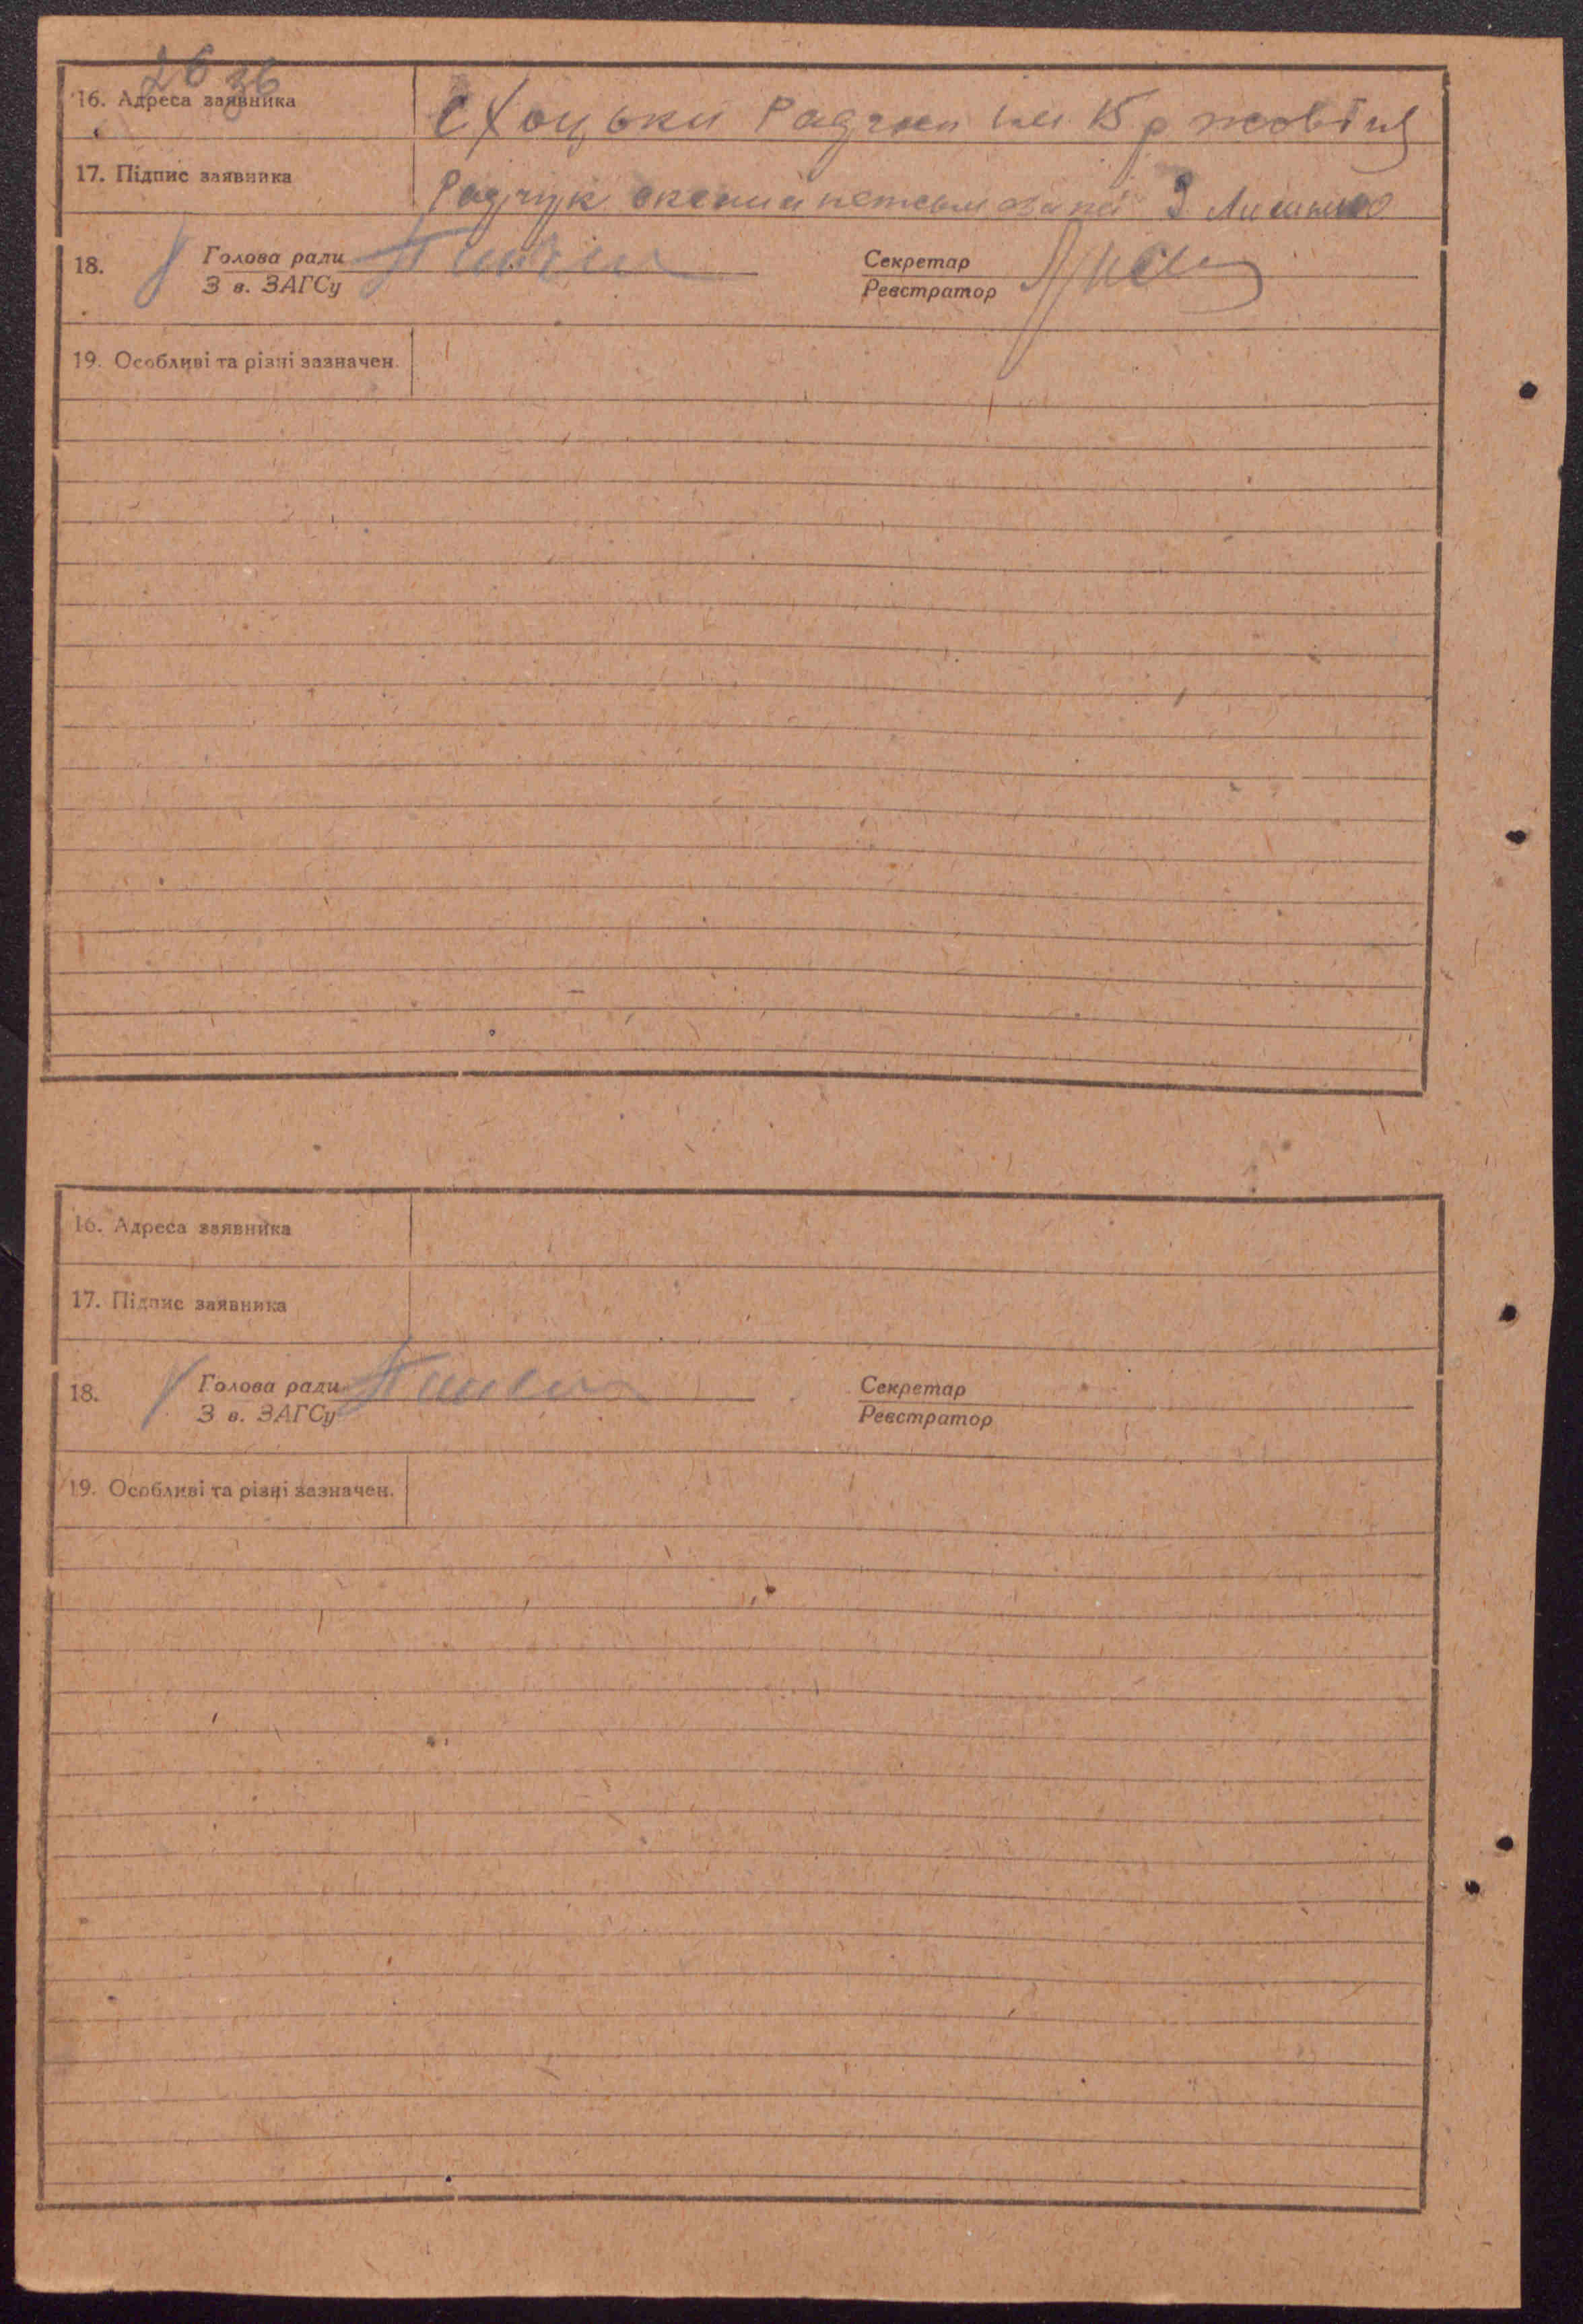 26 36
16. Адреса заявника
с Хоцьки Радгосп им 15 р жовтня
17. Підпис заявника
Радчук
18. Голова ради
З в. ЗАГСу
Секретар
Реєстратор
19. Особливі та різні зазначен.
16. Адреса заявника
17. Підпис заявника
18. Голова ради
З в. ЗАГСу
Секретар
Реєстратор
19. Особливі та різні зазначен.